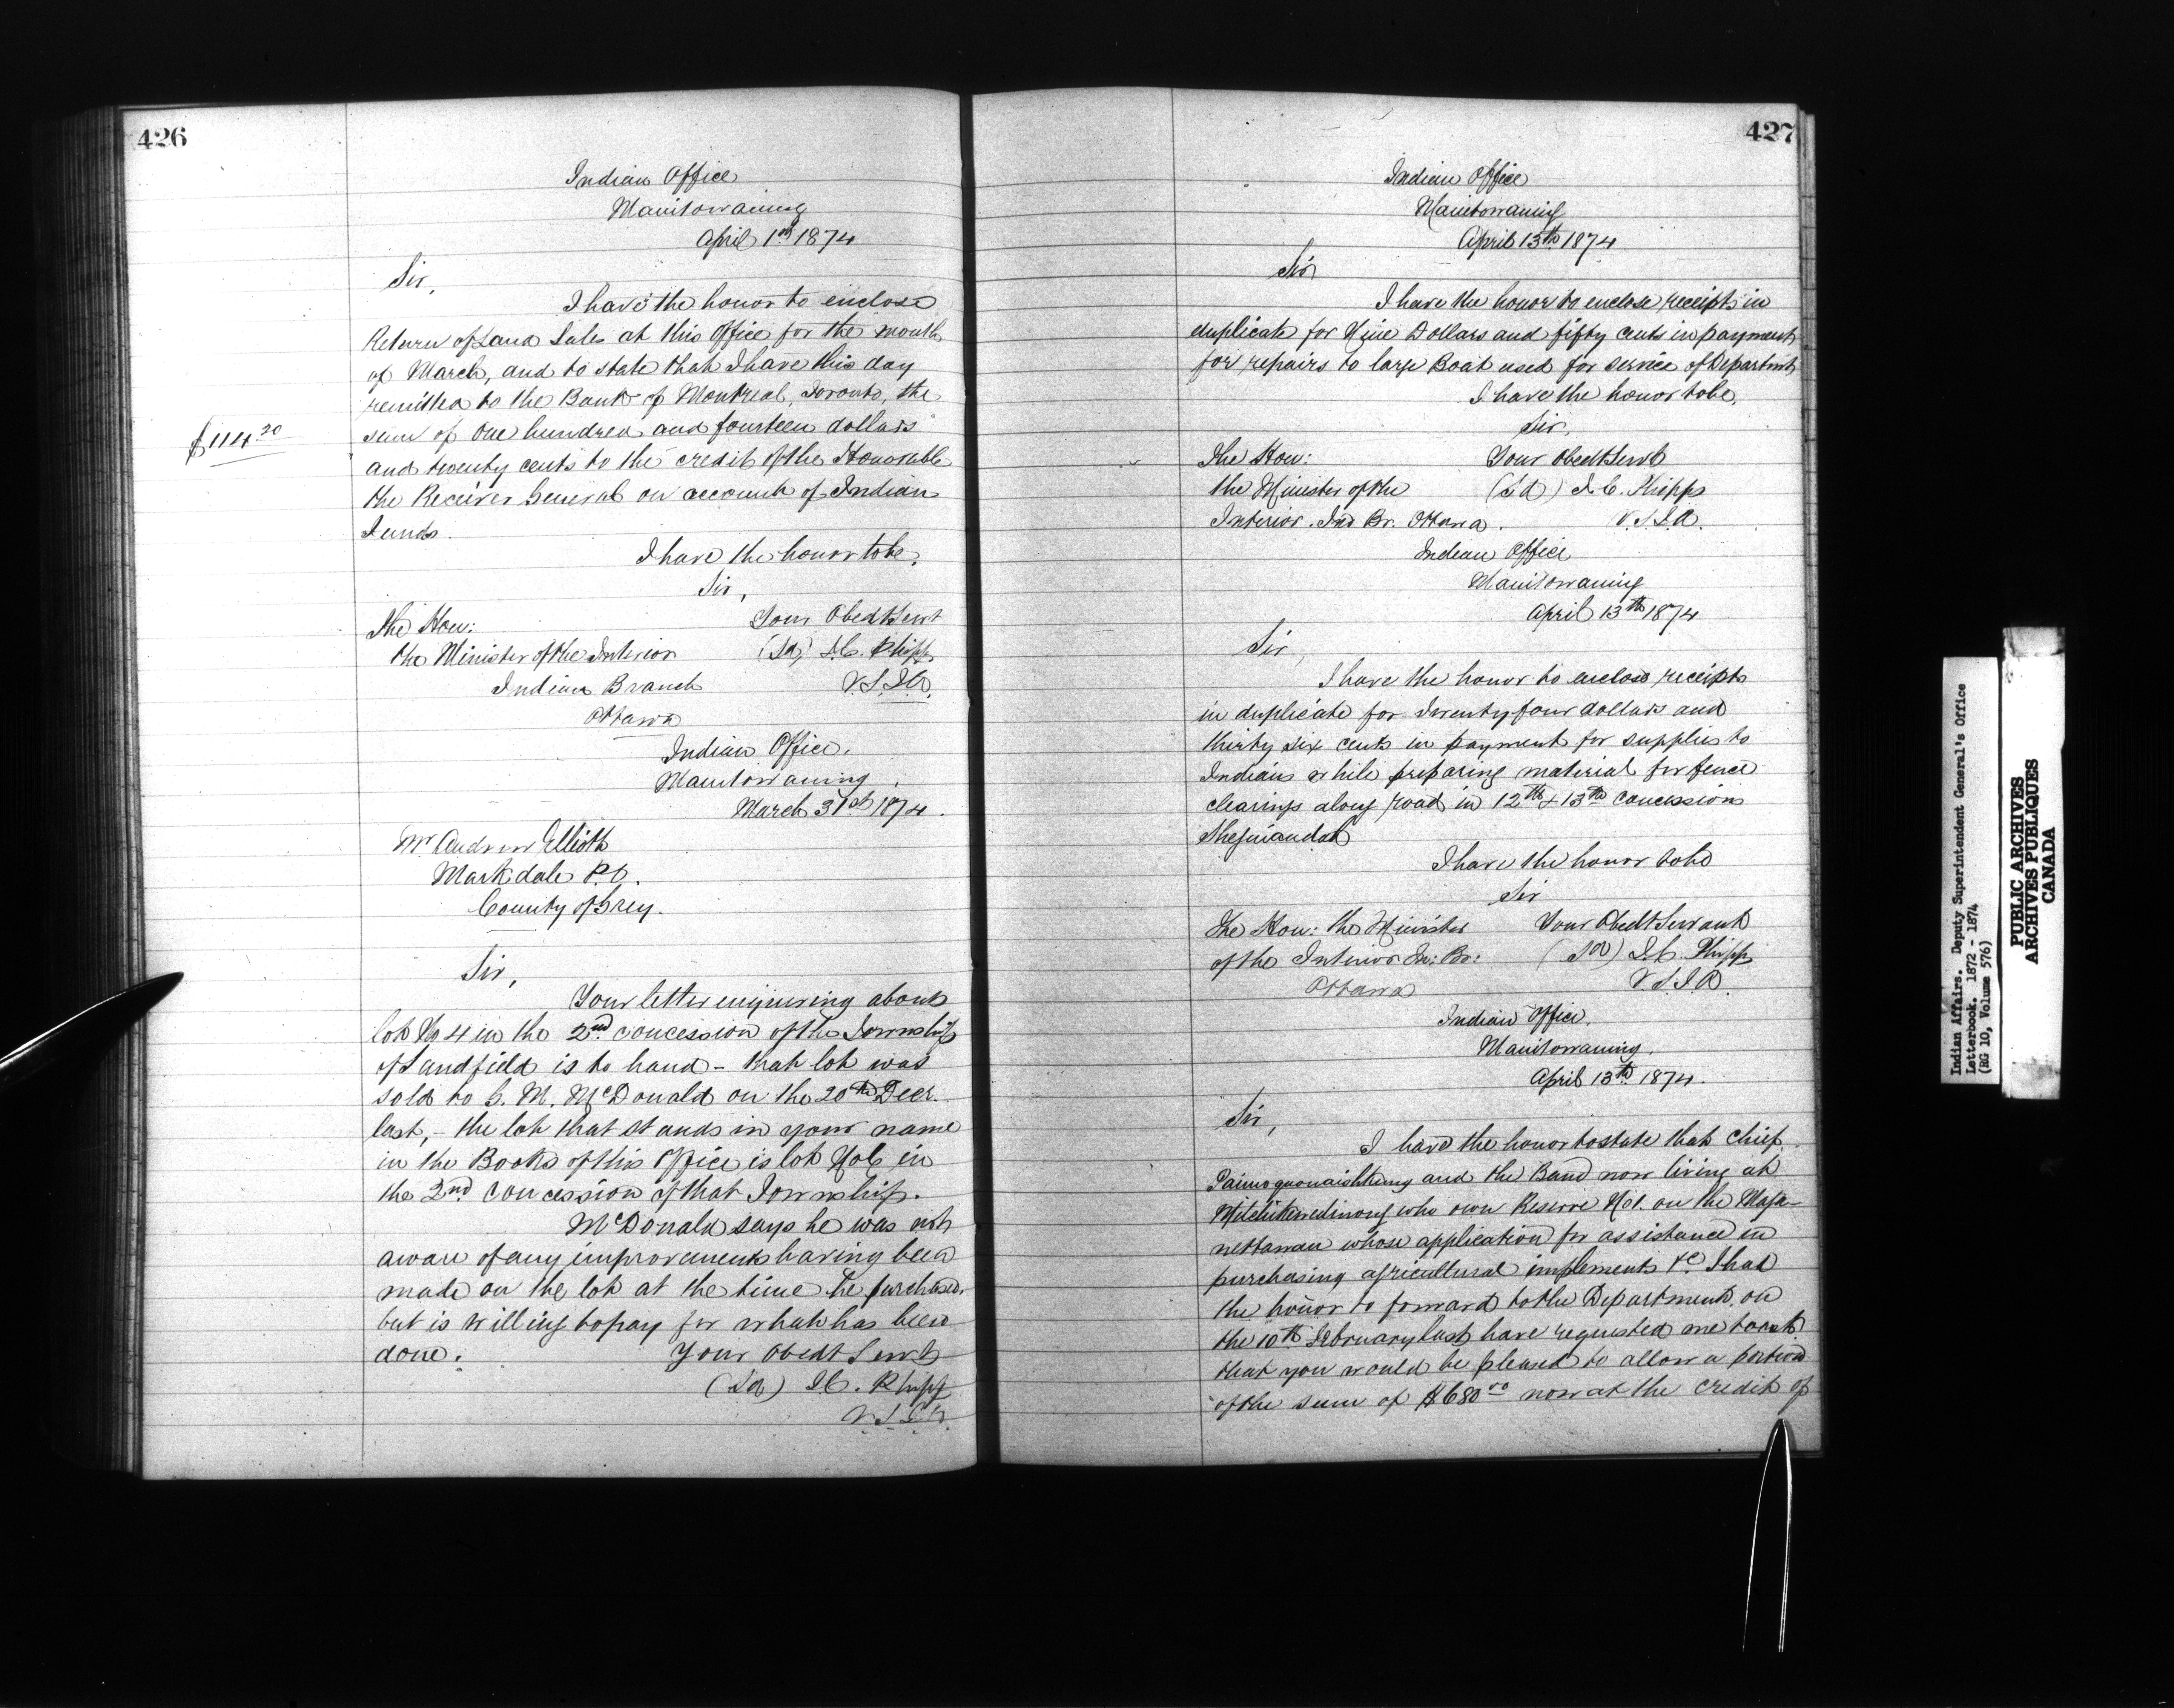 426
Indian Office
Manitowaning
April 1st 1874
Sir,
I have the honor to enclose
Return of Land Sales at this Office for the month
of March, and to state that I have this day
remitted to the Bank of Montreal, Toronto, the
$114 20
sum of One hundred and fourteen dollars
and twenty cents to the credit of the Honorable
the Receiver General on account of Indian
Funds.
I have the honor to be,
Sir,
The Hon: Your Obedt Servt
the Minister of the Interior (Sd) J.C. Phipps
Indian Branch V.S.I.A.
Ottawa
Indian Office.
Manitowaning.
March 31st 1874.
Mr Andrew Elliott
Markdale P.O.
County of Grey.
Sir,
Your letter enquiring about
lot No 4 in the 2nd concession of the Township
of Sandfield is to hand - that lot was
sold to G. M. McDonald on the 20th Decr.
last, - the lot that stands in your name
in the Books of this Office is lot No 6 in
the 2nd concession of that Township.
McDonald says he was not
aware of any improvements having been
made on the lot at the time he purchased.
but is willing to pay for what has been
done. Your Obedt Servt
(Sd) J.C. Phipps
V.S.I.A.
427
Indian Office
Manitowaning
April 13th 1874
Sir
I have the honor to enclose receipts in
duplicate for Nine Dollars and fifty cents in payment
for repairs to large Boat used for service of Departmt
I have the honor to be,
Sir,
The Hon: Your Obedt Servt
the Minister of the (Sd) J.C. Phipps
Interior. Ind Br. Ottawa. V.S.I.A.
Indian Office
Manitowaning
April 13th 1874
Sir,
I have the honor to enclose receipts
in duplicate for Twenty four dollars and
thirty six cents in payment for supplies to
Indians while preparing material for fence
clearings along road in 12th & 13th concessions
Sheguiandah
I have the honor to be
Sir
The Hon: the Minister Your Obedt Servant
of the Interior In: Br: (Sd) J.C. Phipps
Ottawa V.S.I.A.
Indian Office,
Manitowaning.
April 13th 1874.
Sir,
I have the honor to state that Chief
Paimoquonaishkung and the Band now living at
Mitchikewedinong who own Reserve No 1. on the Maga-
nettawan whose application for assistance in
purchasing agricultural implements &c I had
the honor to forward to the Department, on
the 10th February last have requested me to ask
that you would be pleased to allow a portion
of the sum of $680 00 now at the credit of
Indian Affairs. Deputy Superintendent General's Office
Letterbook. 1872 - 1874
(RG 10, Volume 576)
PUBLIC ARCHIVES
ARCHIVES PUBLIQUES
CANADA